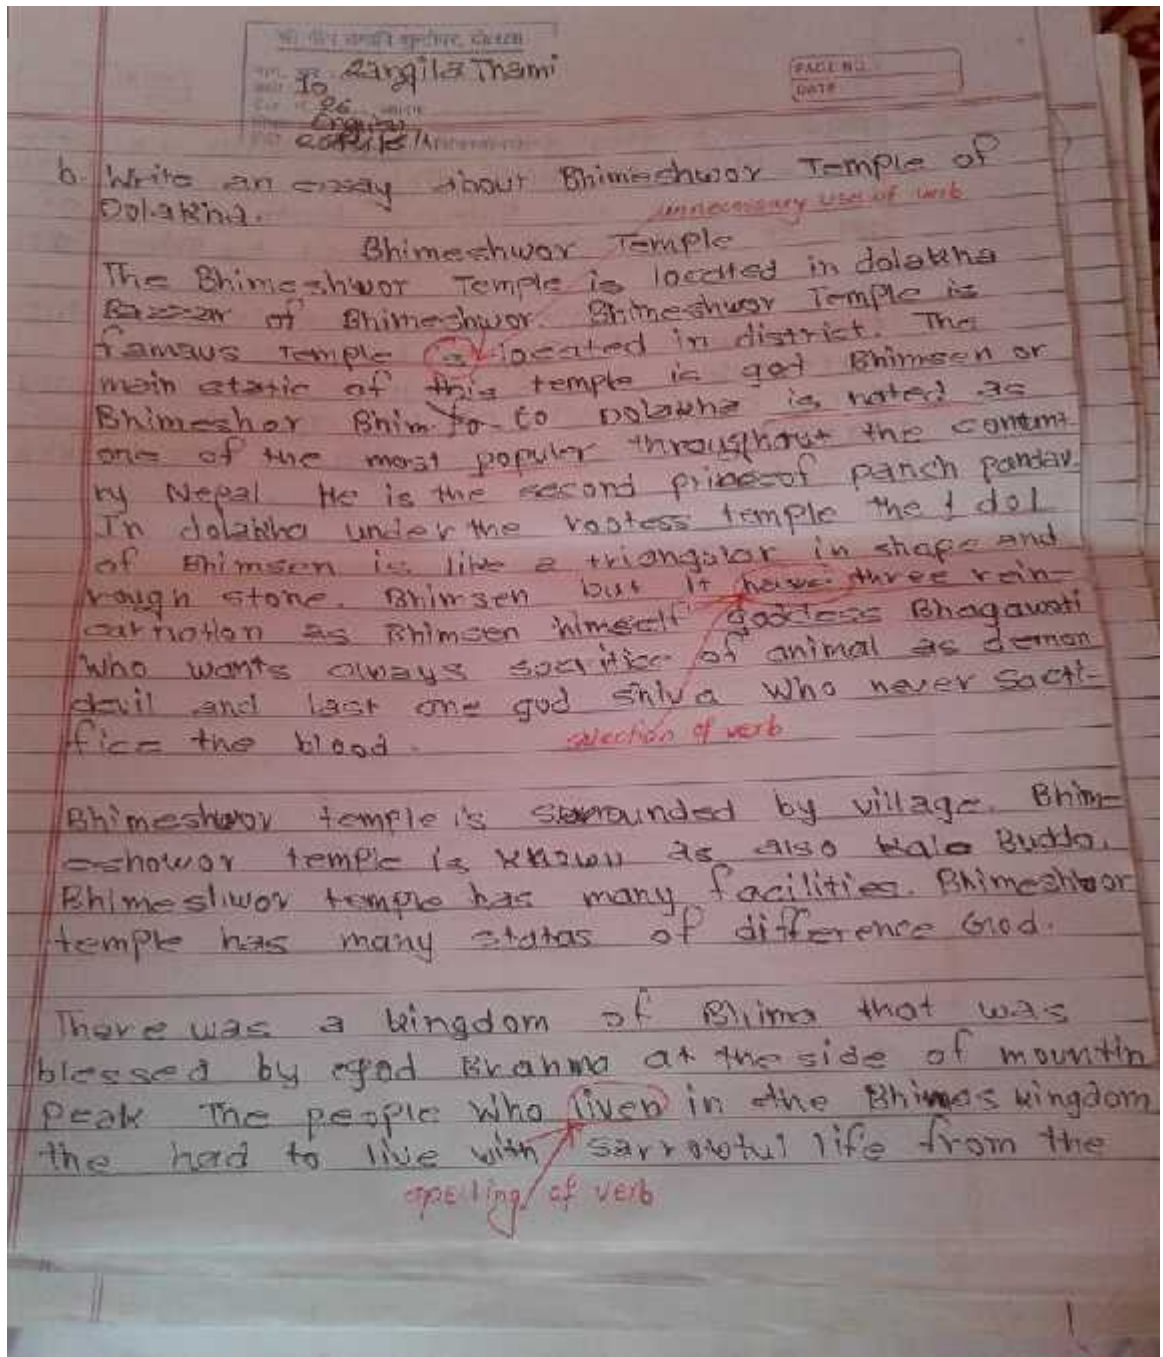 Rangila Thami
10
26
English
PAGE NO.
DATE
b. Write an essay about Bhimeshwor Temple of
Dolakha.
unnecessary use of verb
Bhimeshwor Temple
The Bhimeshwor Temple is located in dolakha
Bazzar of Bhimeshwor. Bhimeshwor Temple is
famaus Temple is located in district. The
main static of this temple is god Bhimsen or
Bhimeshor Bhim to Dolakha is noted as
one of the most populer throughout the
ry Nepal He is the second of panch pandav.
In dolakha under the rootess temple the Idol
of Bhimsen is like a triangular in shape and
rough stone. Bhimsen but it have three rein-
carnation as Bhimsen himself goddess Bhagawati
Who wants always sacrifice of animal as demon
devil and last one god shiva Who never sacti-
fice the blood.
selection of verb
Bhimeshwor temple is surrounded by village. Bhim-
eshowor temple is known as also kalo Buddo.
Bhimeshwor temple has many facilities. Bhimeshwor
temple has many statas of difference God.
There was a kingdom of Bhima that was
blessed by god Brahma at the side of mountin
Peak The people who liven in the Bhimas kingdom
the had to live with sarrowful life from the
spelling of verb